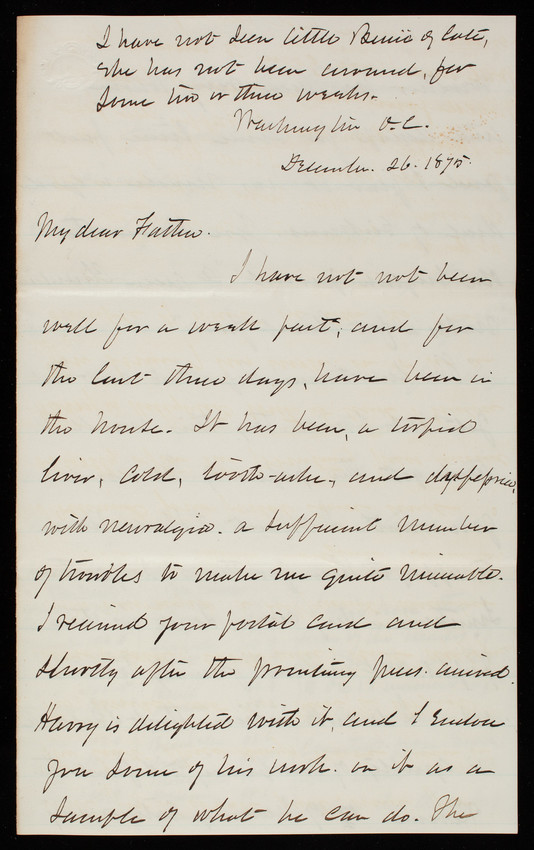 I have not seen little Bernie of late,
she has not been around, for
some two or three weeks.
Washington D.C.
December. 26. 1875.
My dear Father.
I have not not been
well for a week past, and for
the last three days, have been in
the house. It has been, a torpid
liver, cold, tooth-ache, and dyspepsia,
with neuralgia. a sufficient number
of troubles to make me quite miserable.
I received your postal card and
shortly after the printing press. arrived.
Harry is delighted with it, and I Enclose
you some of his work. on it as a
sample of what he can do. The